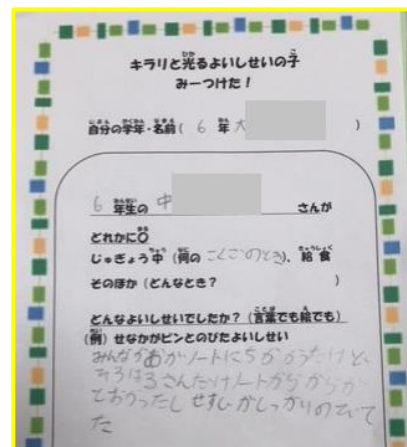 キラリと光るよいしせいの子
みーつけた！
自分の学年・名前（ 6 年 大 ）
6 年生の 中 さんが
どれかに○
じゅぎょう中（何の こくごのとき）、給食
そのほか（どんなとき？ ）
どんなよいしせいでしたか？（言葉でも絵でも）
（例）せなかがピンとのびたよいしせい
みんながおかノートにちかかったけど、
さんだけノートから
とおかったし せすじがしっかりのびて
た